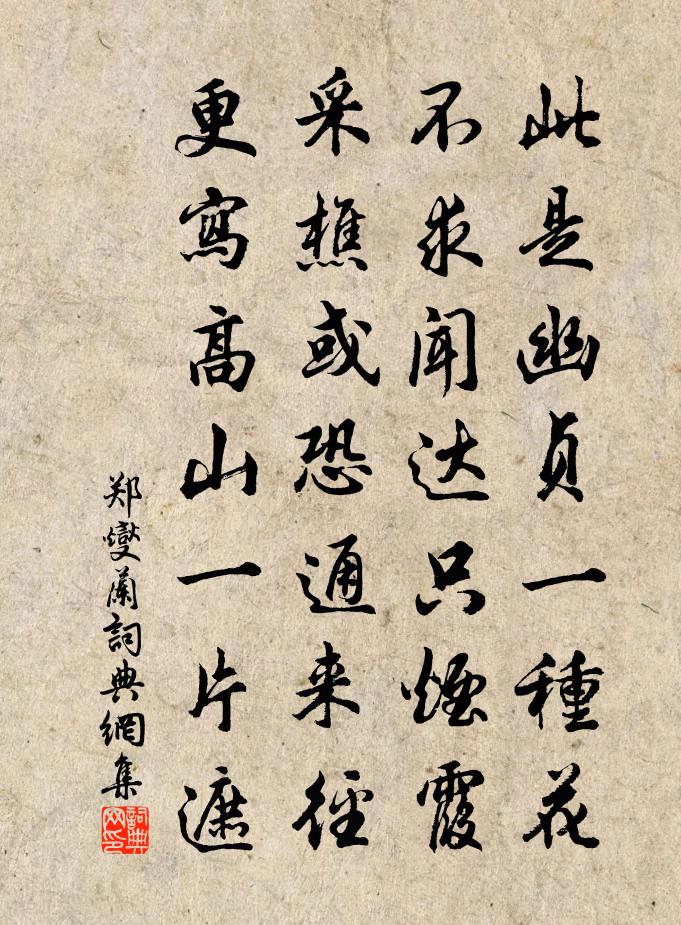 此是幽貞一種花
不求闻达只煙霞
采樵或恐通来径
更寫高山一片遮
郑燮蘭詞典網集
詞典
网印